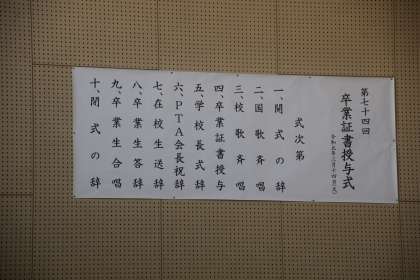 第七十四回
卒業証書授与式
式次第
一、開式の辞
二、国歌斉唱
三、校歌斉唱
四、卒業証書授与
五、学校長式辞
六、PTA会長祝辞
七、在校生送辞
八、卒業生答辞
九、卒業生合唱
十、閉式の辞